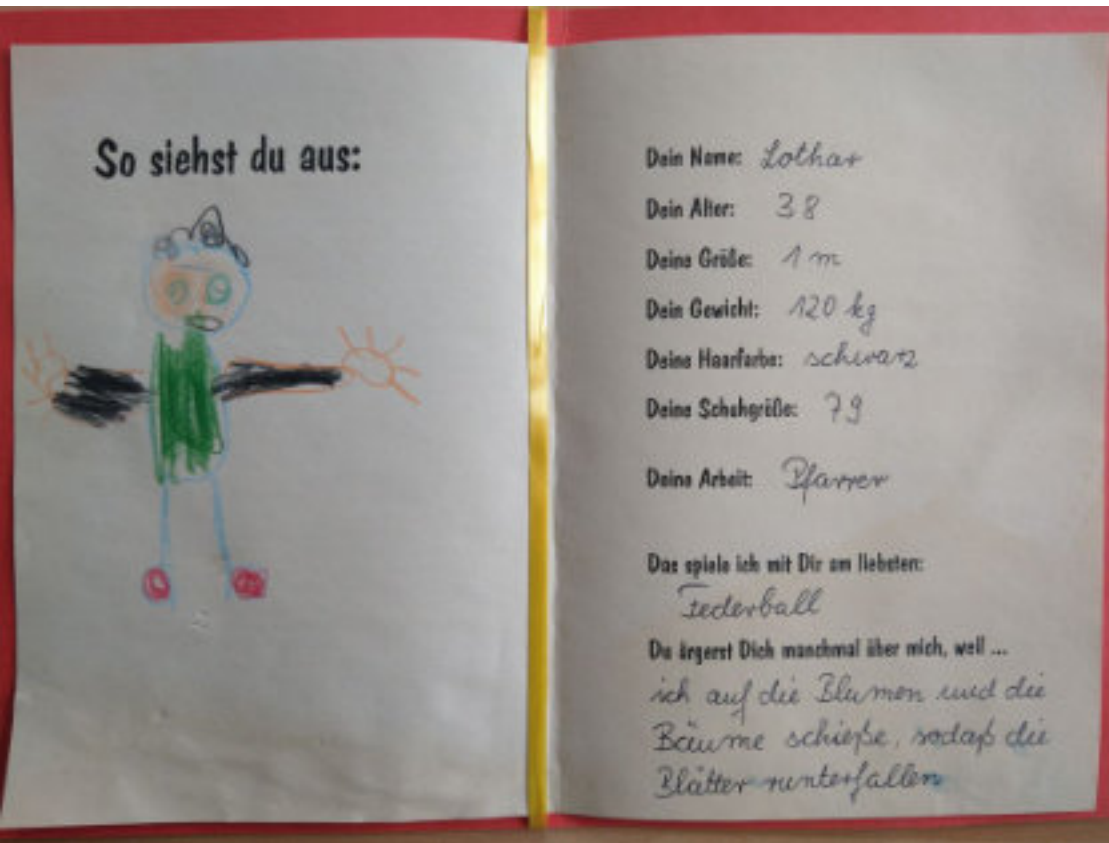 So siehst du aus:
Dein Name: Lothar
Dein Alter: 38
Deine Größe: 1 m
Dein Gewicht: 120 kg
Deine Haarfarbe: schwarz
Deine Schuhgröße: 79
Deine Arbeit: Pfarrer
Das spiele ich mit Dir am liebsten:
Federball
Du ärgerst Dich manchmal über mich, weil ...
ich auf die Blumen und die
Bäume schieße, sodaß die
Blätter runterfallen